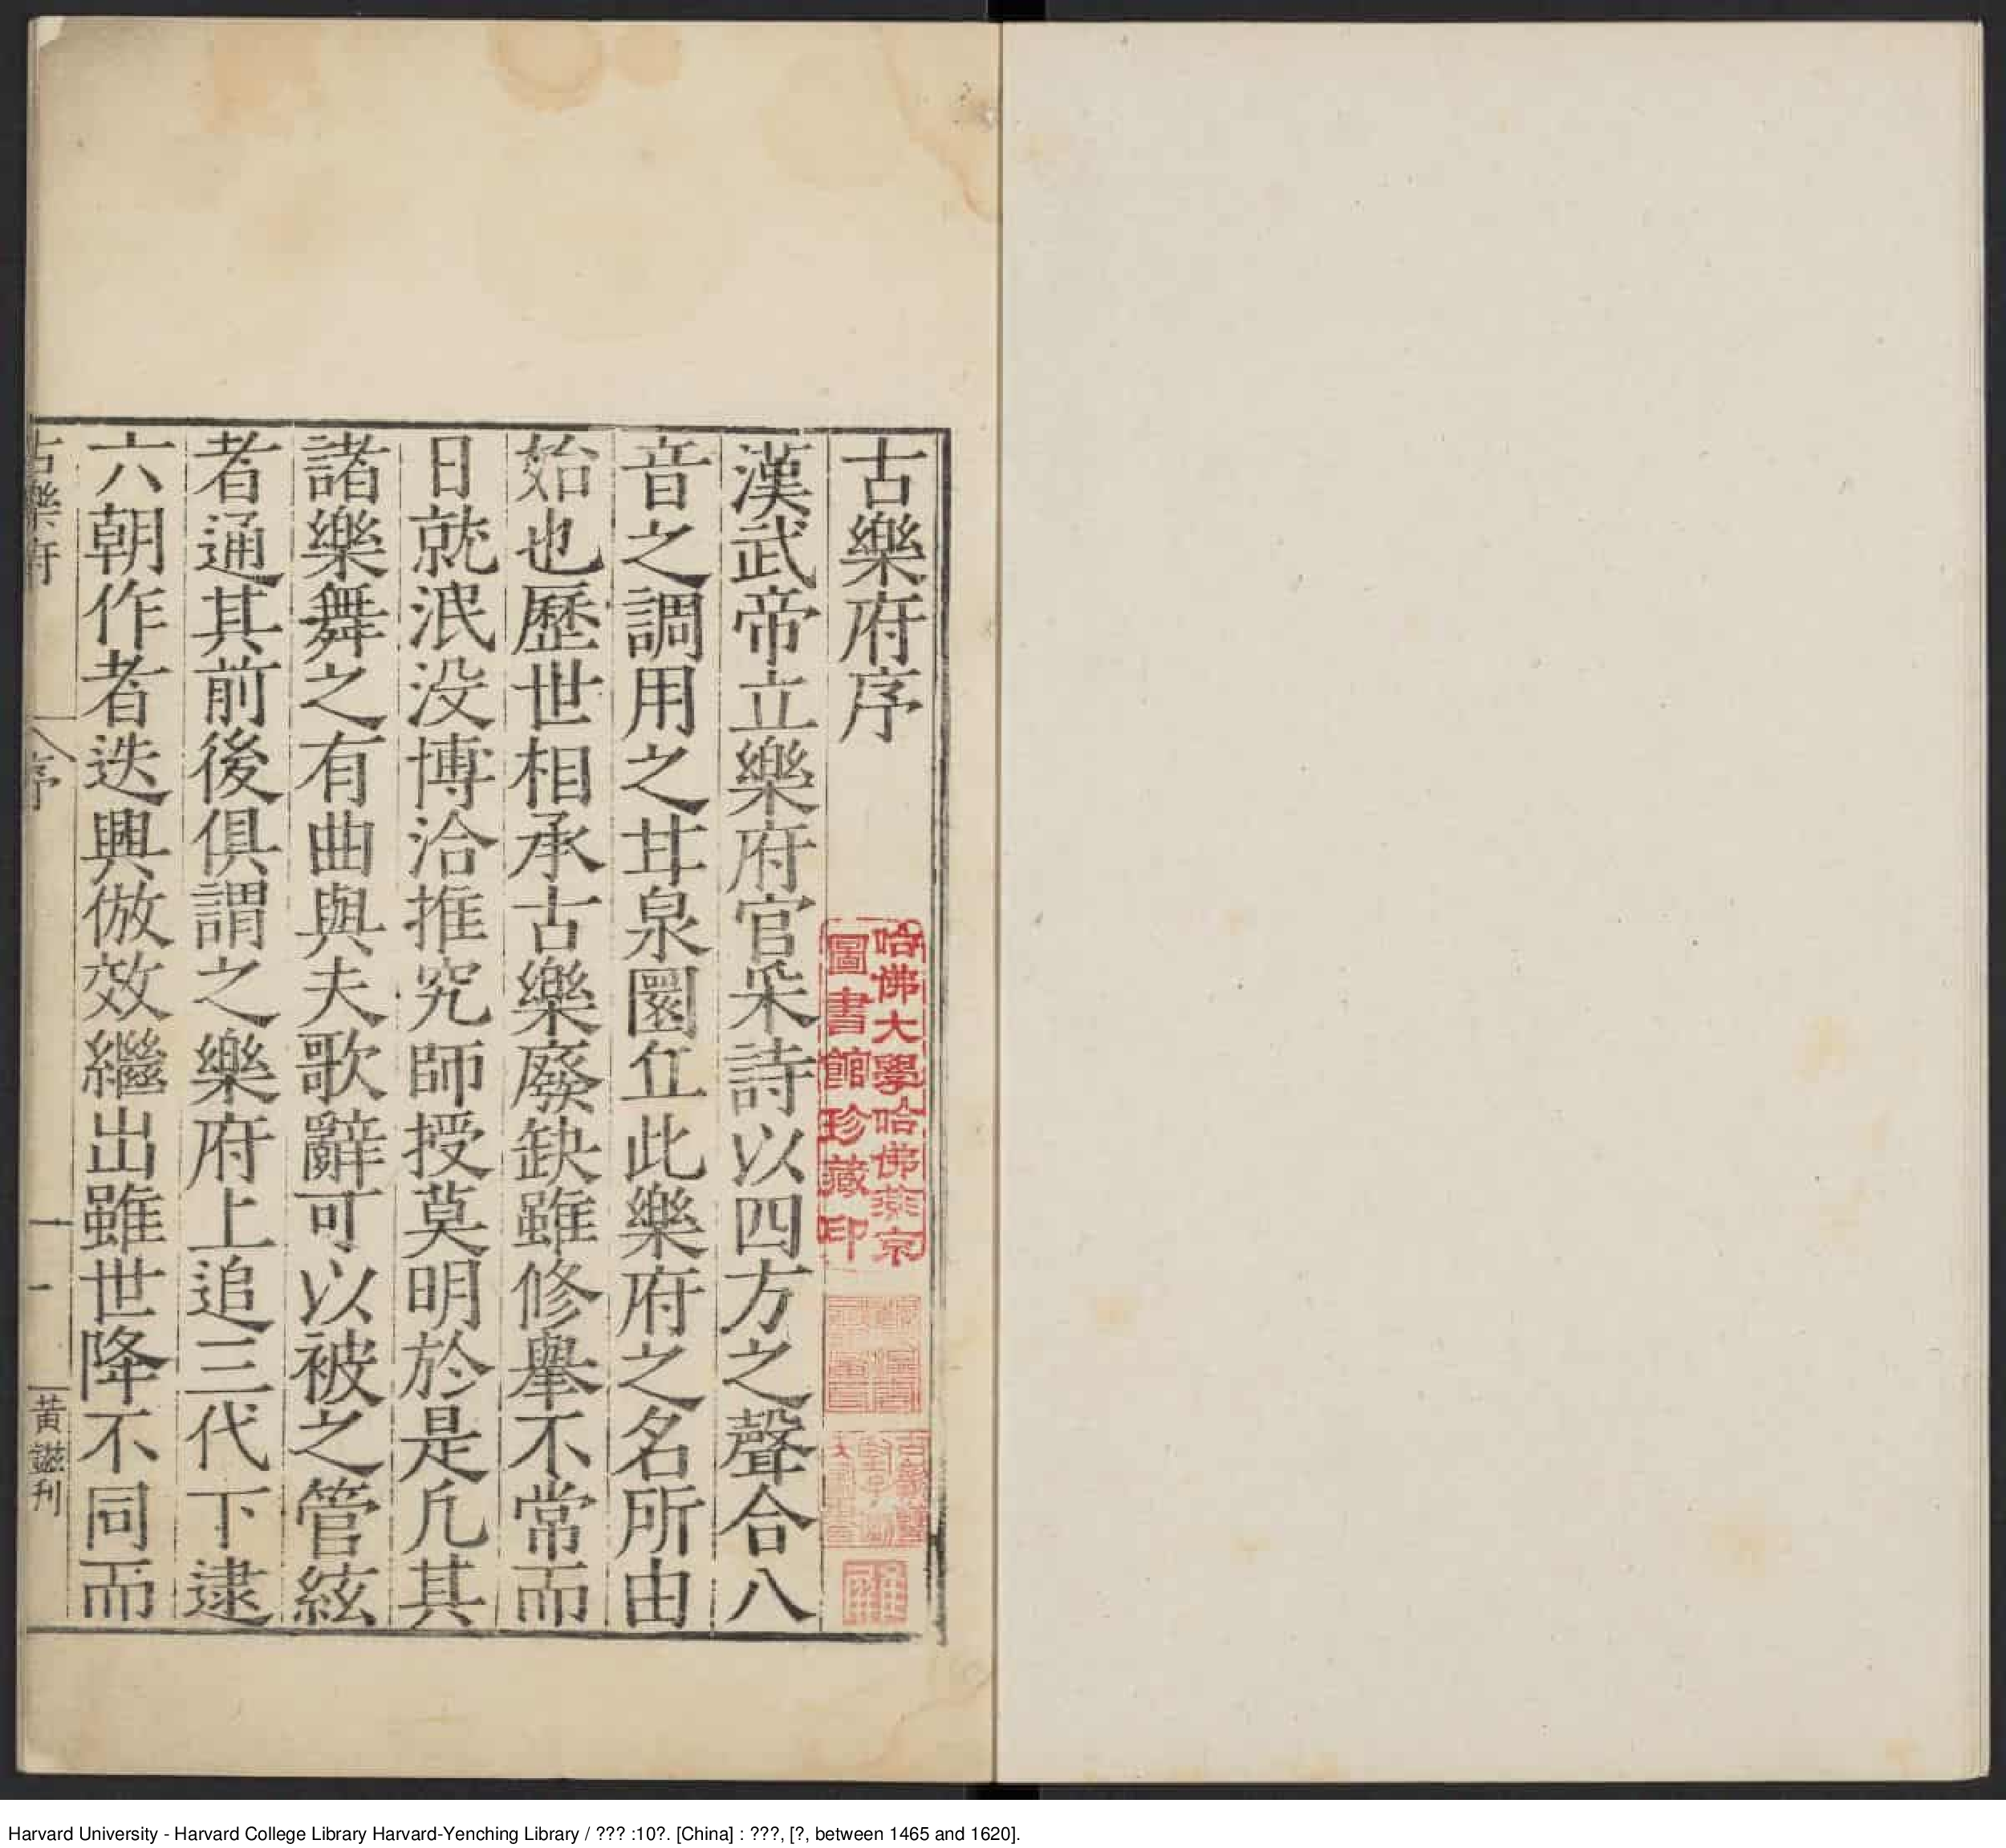 古樂府序
漢武帝立樂府官采詩以四方之聲合八
音之調用之甘泉圜丘此樂府之名所由
始也歷世相承古樂廢缺雖修舉不常而
日就泯没博洽推究師授莫明於是凢其
諸樂舞之有曲與夫歌辭可以被之管絃
者通其前後俱謂之樂府上追三代下逮
六朝作者迭興倣效繼出雖世降不同而
古樂府
序
一
刊
哈佛大學哈佛燕京
圖書館珍藏印
Harvard University - Harvard College Library Harvard-Yenching Library / ??? :10?. [China] : ???, [?, between 1465 and 1620].